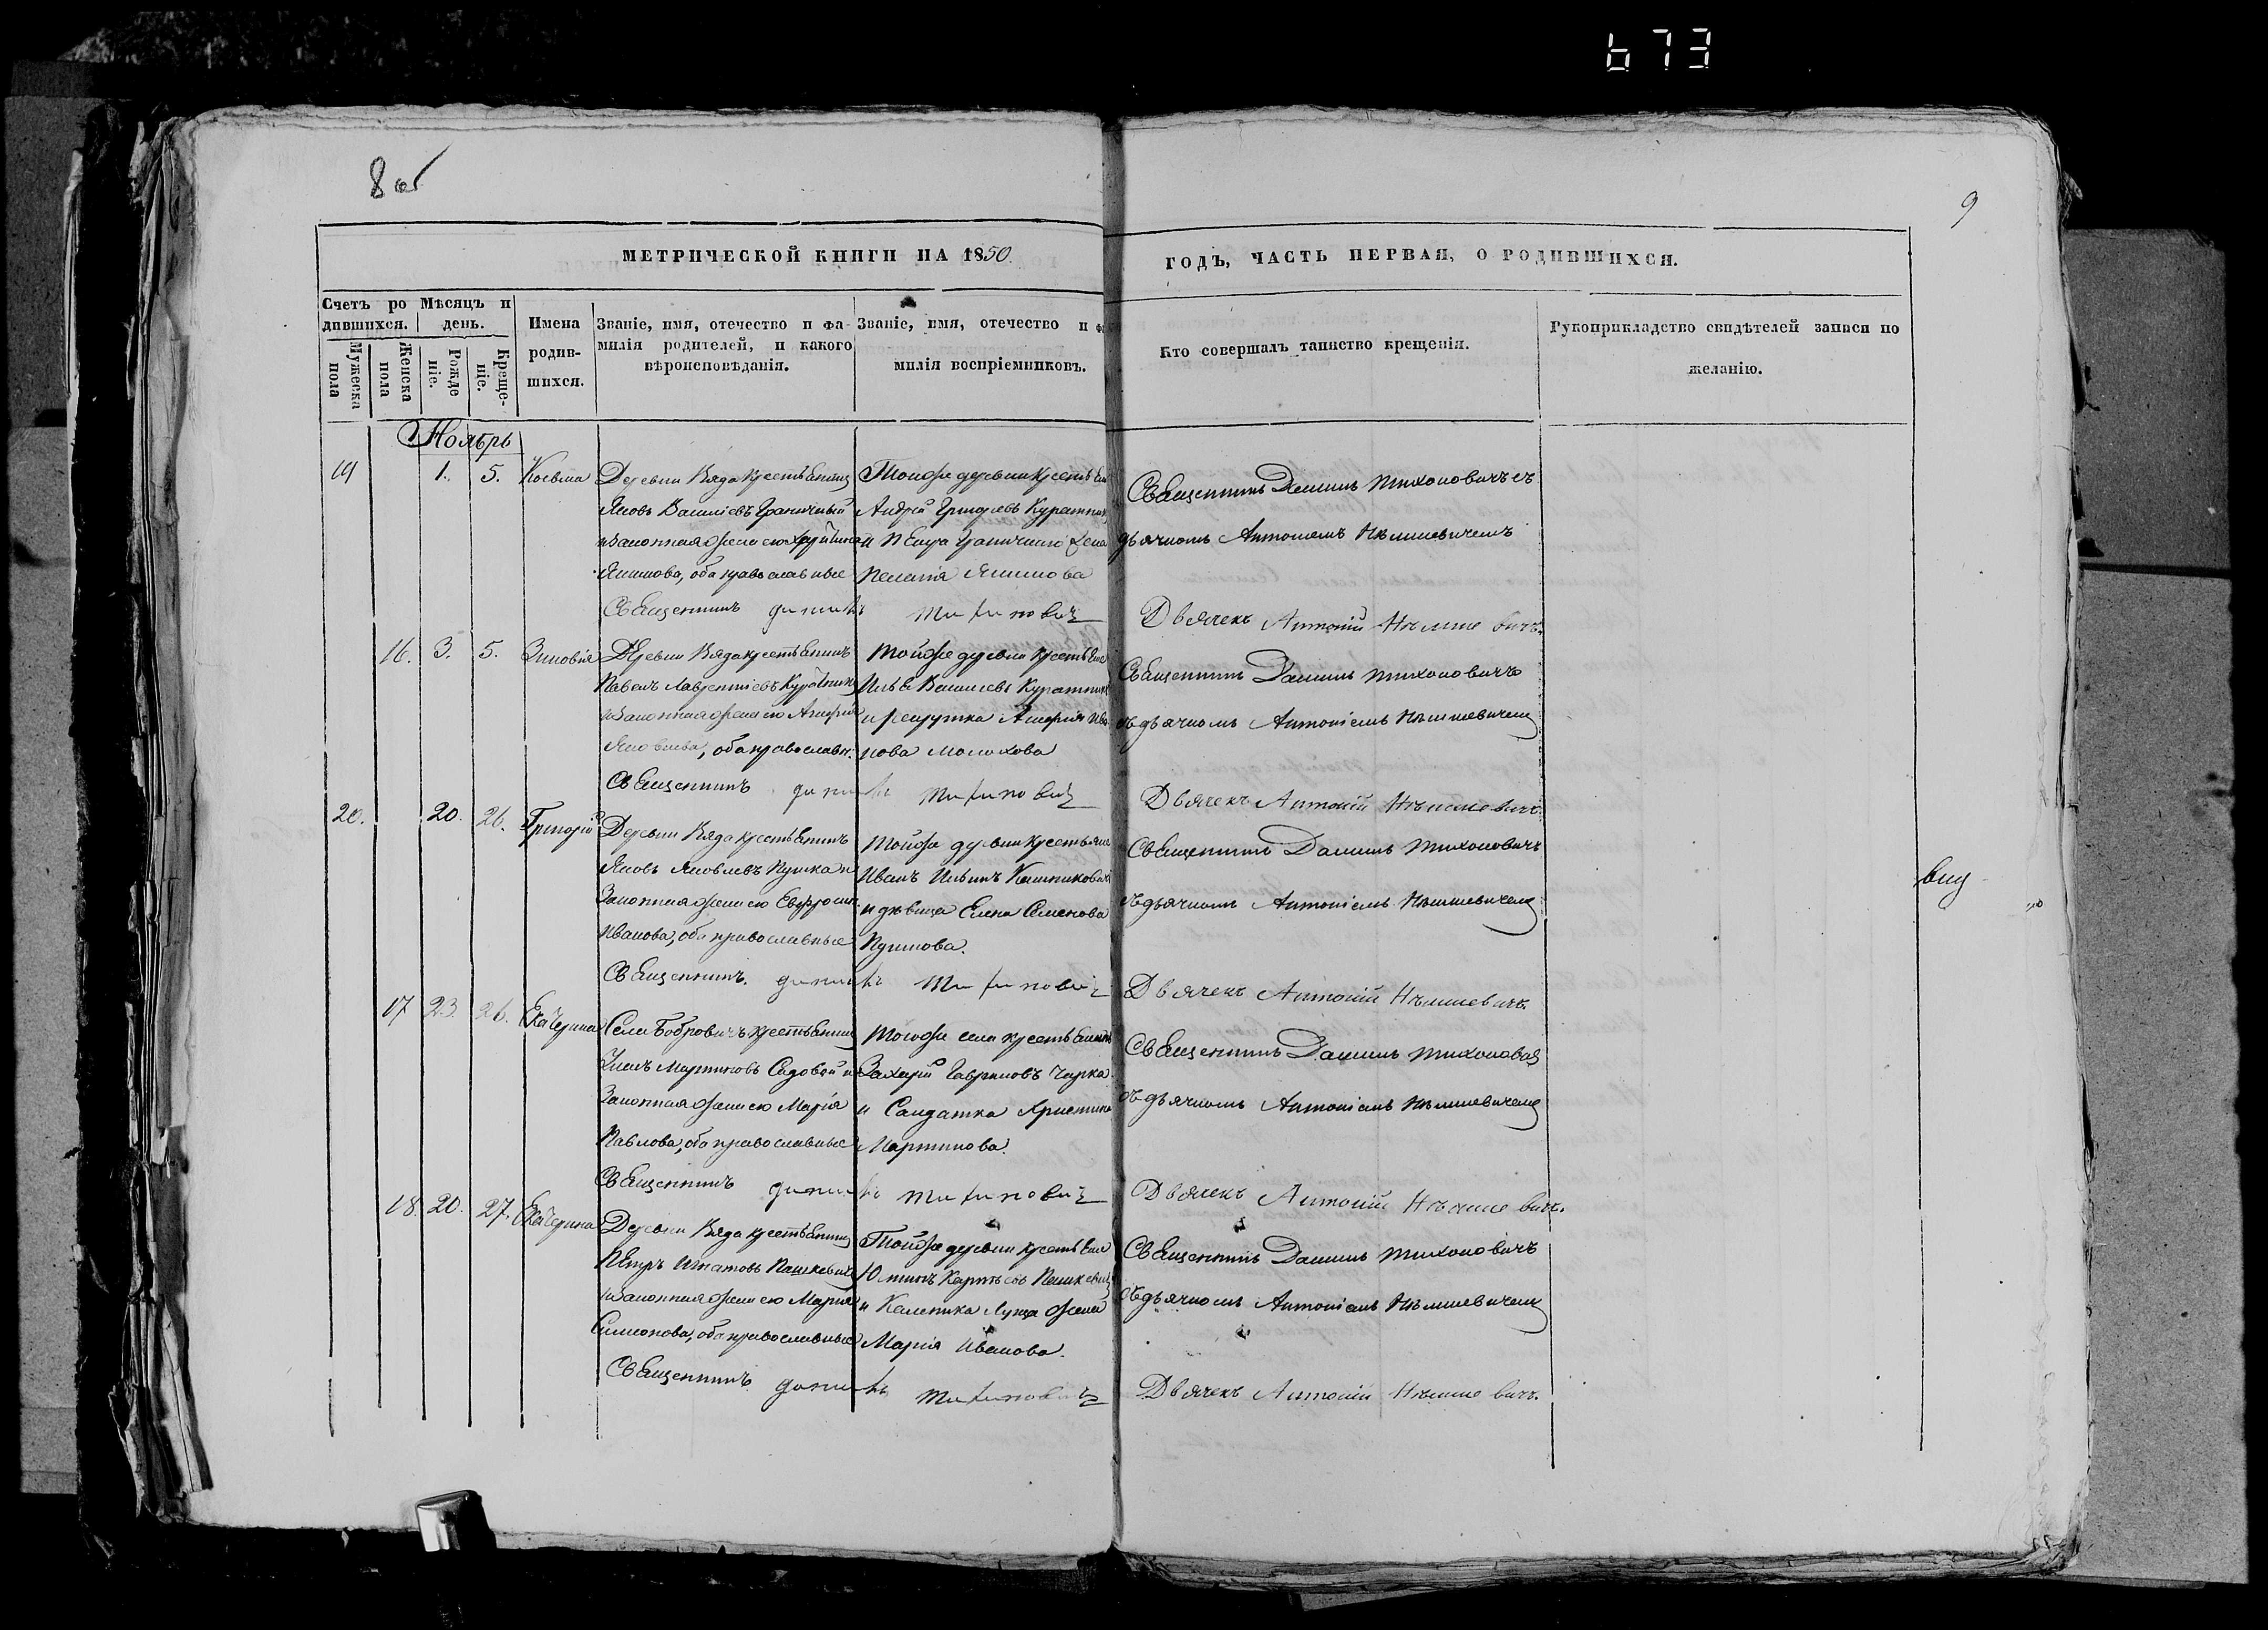 673
8 об
9
МЕТРИЧЕСКОЙ КНИГИ НА 1850
ГОДЪ, ЧАСТЬ ПЕРВАЯ, О РОДИВШИХСЯ.
Счетъ ро дившихся.
Мѣсяцъ и день.
Мужеска пола
Женска пола
Рожде ніе.
Креще- ніе.
Имена родив- шихся.
Званіе, имя, отечество и фа- милія родителей, и какого вѣроисповѣданія.
Званіе, имя, отечество и фа милія воспріемниковъ.
Кто совершалъ таинство крещенія.
Рукоприкладство свидѣтелей записи по желанію.
Ноябрь
19 1. 5. Косьма
Деревни Вяда крестьянинъ
Яковъ Василіевъ Граничный
и законная жена его
Якимова, оба православные
Тойже деревни крестьян
Андрей Григорьевъ Куратникъ
и Петра Граничнаго жена
Пелагія Якимова
Священникъ Даніилъ Тихоновичъ съ
дьячкомъ Антоніемъ Нѣмшевичемъ
Священникъ Даніилъ Тихоновичъ
Дьячекъ Антоній Нѣмшевичъ.
16. 3. 5. Зиновія
Деревни Вяда крестьянинъ
Павелъ Лаврентіевъ Куратникъ
и законная жена его Агафія
Яковлева, оба православн.
Тойже деревни крестьян
Илья Василіевъ Куратникъ
и рекрутка Агафія Ива
нова Молохова
Священникъ Даніилъ Тихоновичъ
съ дьячкомъ Антоніемъ Нѣмшевичемъ
Священникъ Даніилъ Тихоновичъ
Дьячекъ Антоній Нѣмшевичъ
20. 20. 26. Григорій
Деревни Вяда крестьянинъ
Яковъ Яковлевъ Пушка и
законная жена его Евфросин.
Иванова, оба православные
Тойже деревни крестьяне
Иванъ Ильинъ
и дѣвица Елена Семенова
Пушкова.
Священникъ Даніилъ Тихоновичъ
съ дьячкомъ Антоніемъ Нѣмшевичемъ
Священникъ Даніилъ Тихоновичъ
Дьячекъ Антоній Нѣмшевичъ
17 23. 26. Екатерина
Села Бобровичъ крестьянинъ
Мартиновъ Садовой и
законная жена его Марія
Павлова, оба православные
Тогоже села крестьянинъ
Захарій Гавриловъ Чирка
и Солдатка Христина
Мартинова.
Священникъ Даніилъ Тихоновичъ
съ дьячкомъ Антоніемъ Нѣмшевичемъ
Священникъ Даніилъ Тихоновичъ
Дьячекъ Антоній Нѣмшевичъ.
18. 20. 27. Екатерина
Деревни Вяда крестьянинъ
Петръ Игнатовъ Пашкевичъ
и законная жена его Марія
Симонова, оба православные
Тойже деревни крестьяне
Юстинъ Карповъ Пашкевичъ
и Каленика Луцка жена
Марія Иванова.
Священникъ Даніилъ Тихоновичъ
съ дьячкомъ Антоніемъ Нѣмшевичемъ
Священникъ Даніилъ Тихоновичъ
Дьячекъ Антоній Нѣмшевичъ.